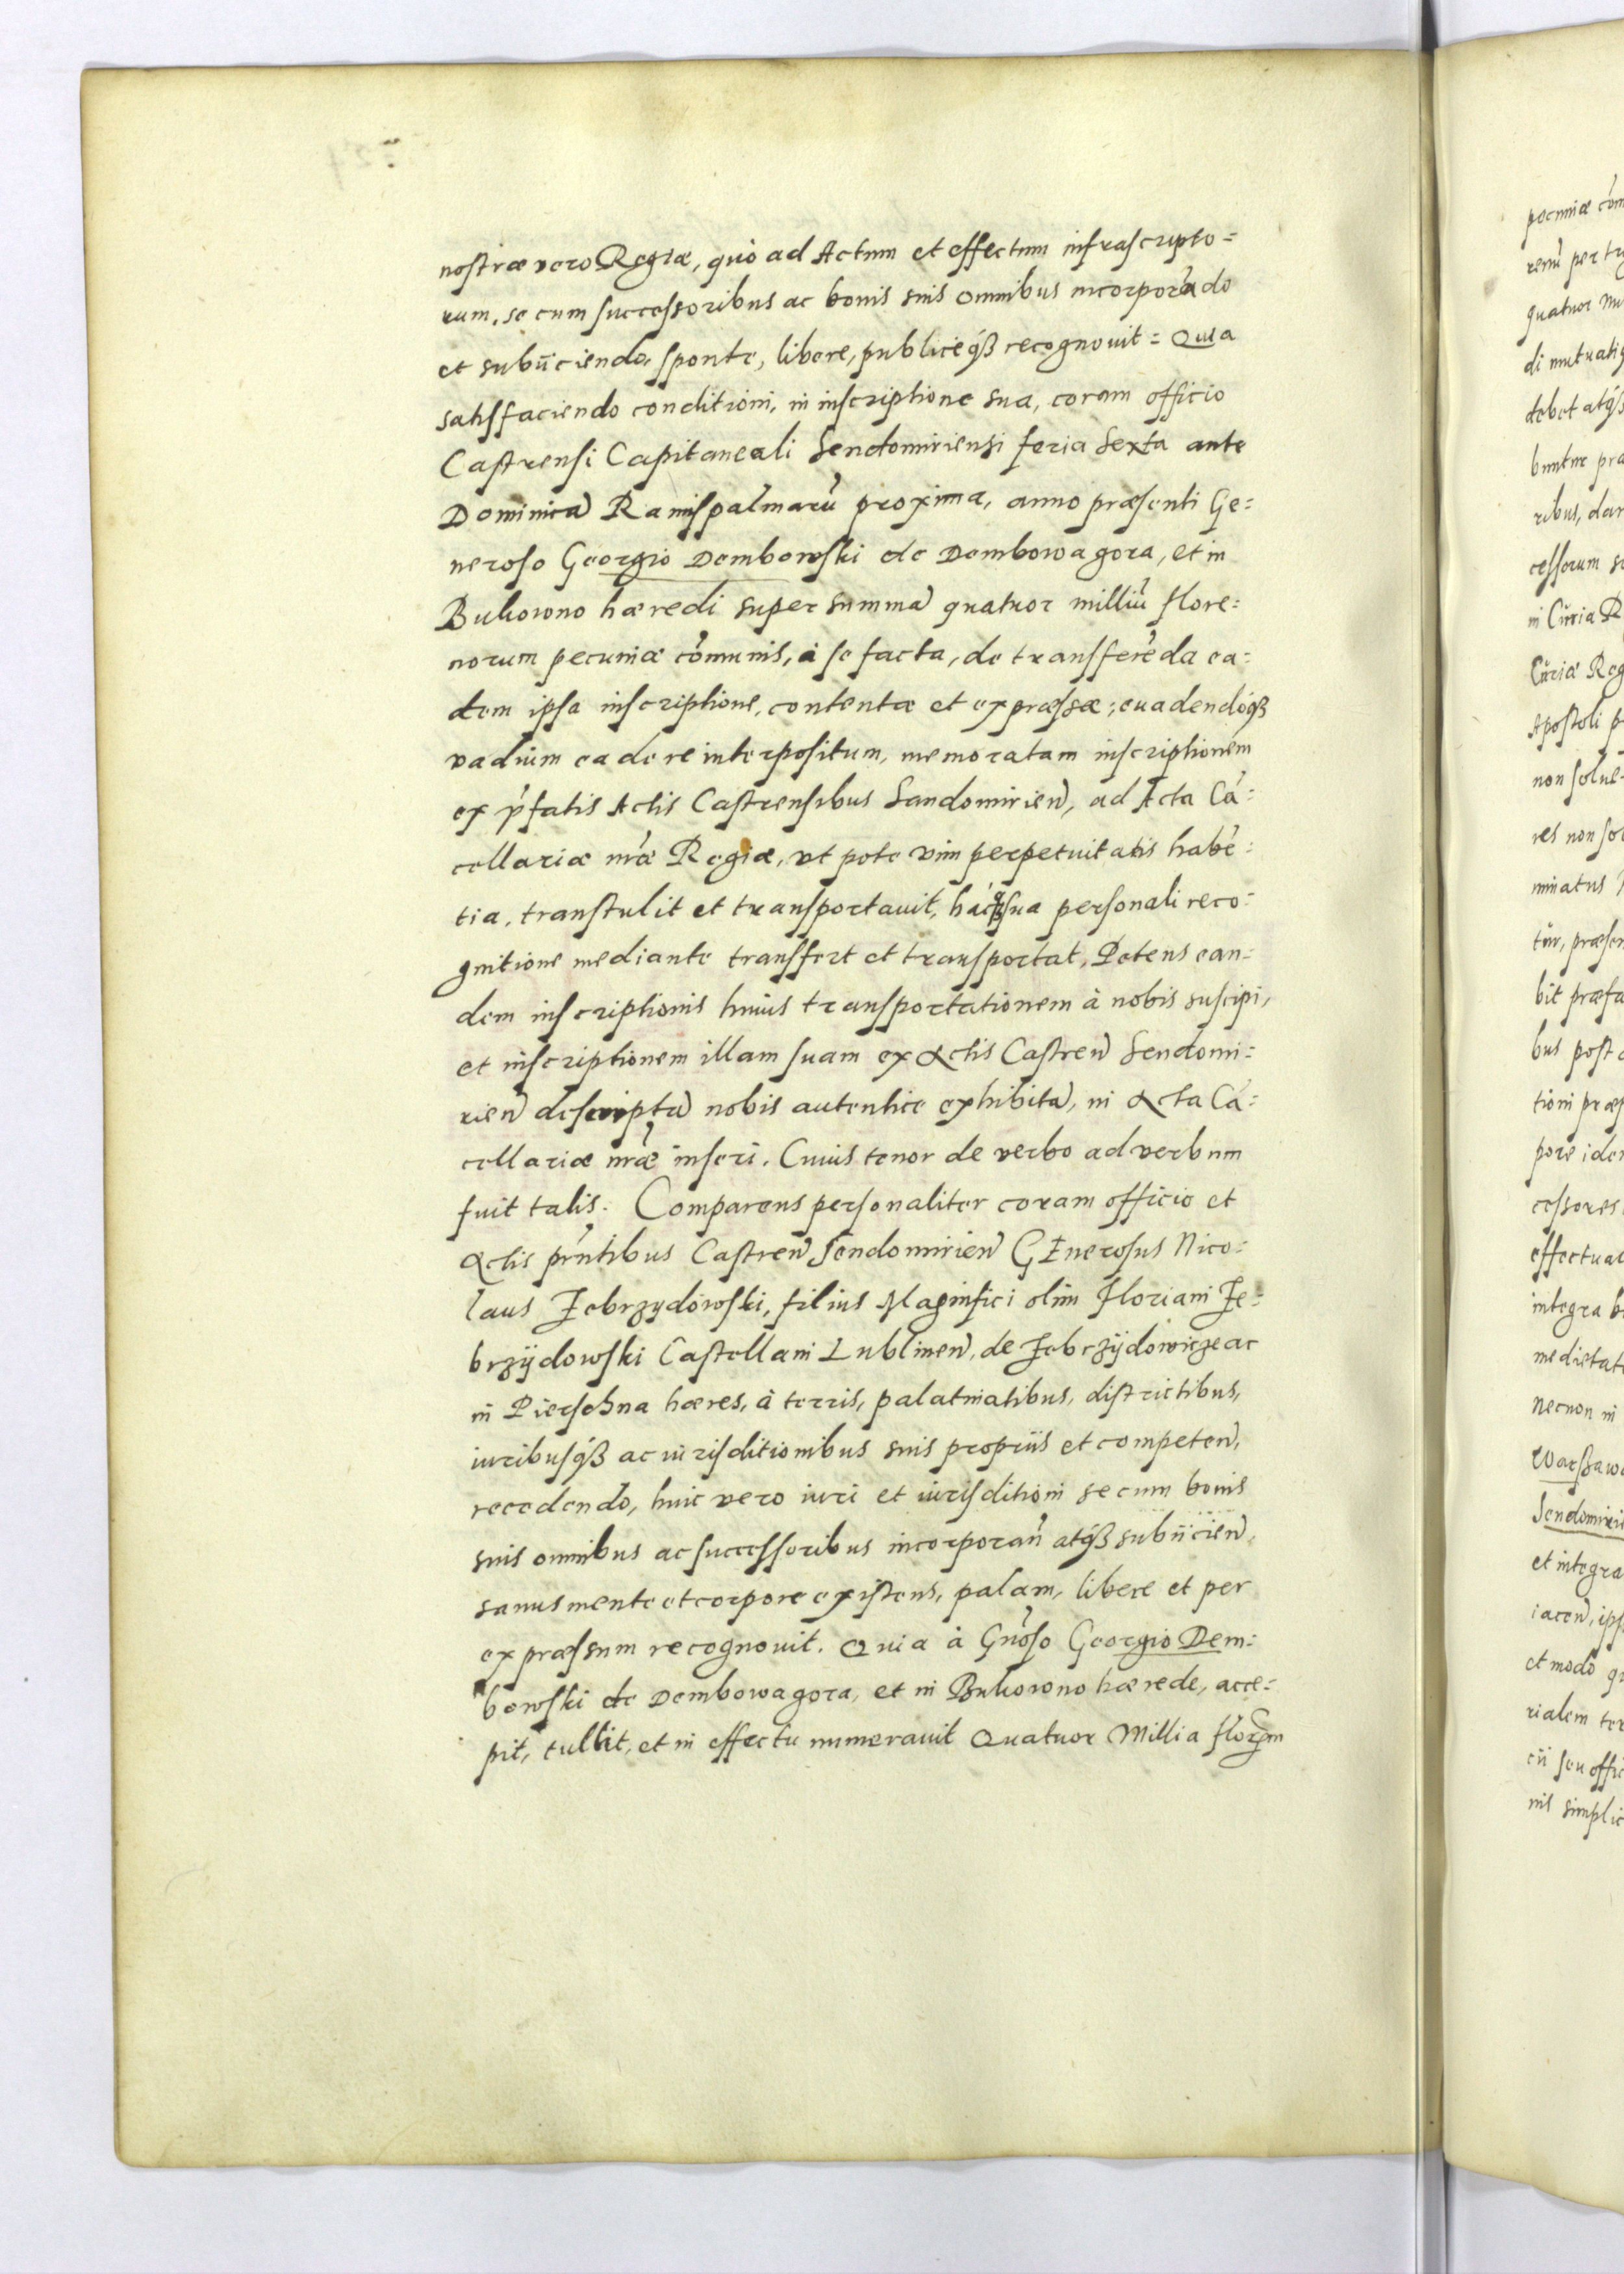 nostræ vero Regiæ, quò ad Actum et effectum infrascripto=
rum, se cum successoribus ac bonis suis omnibus incorporãdo
et subijciendo, sponte, libere, publiceq́ꝫ recognouit = Quia
satisfaciendo conditioni, in inscriptione sua, coram officio
Castrensi Capitaneali Sendomiriensi feria Sexta ante
Dominicã Ramispalmarũ proxima, anno præsenti Ge=
neroso Georgio Dembowski de Dembowagora, et in
Bukowno hæredi super summã quatuor milliũ flore=
norum pecuniæ cõmunis, à se facta, de transferẽda ea=
dem ipsa inscriptione, contentæ et expræssæ, euadendóq́ꝫ
vadium ea de re interpositum, memoratam inscriptionem
ex p̃fatis Actis Castrensibus Sandomirieñ, ad Acta Cã=
cellariæ nrã̃e Regiæ, vt pote vim perpetuitatis habẽ=
tia, transtulit et transportauit, hácq́ꝫ sua personali reco=
gnitione mediante transfert et transportat, Petens ean=
dem inscriptionis huius transportationem à nobis suscipi,
et inscriptionem illam suam ex Actis Castreñ Sendomi=
rieñ descriptã nobis autentice exhibitã, in Acta Cã=
cellariæ nrã̃e inseri. Cuius tenor de verbo ad verbum
fuit talis. Comparens personaliter coram officio et
Actis prñtibus Castreñ Sendomirieñ GEnerosus Nico=
laus Zebrzydowski, filius Magnifici olim Floriani Ze=
brzÿdowski Castellani Lublineñ, de ZebrzÿdowicZe ac
in Pierschna hæres, à terris, palatinatibus, districtibus,
iuribusq́ꝫ ac iurisditionibus suis proprijs et competeñ,
recedendo, huic vero iuri et iurisditioni se cum bonis
suis omnibus ac successoribus incorporañ atq́ꝫ subijcieñ,
sanus mente et corpore existens, palam, libere et per
expræssum recognouit. Quia à Gnõso Georgio Dem=
bowski de Dembowagora, et in Bukowno hærede, acce=
pit, tullit, et in effectu numerauit Quatuor Millia